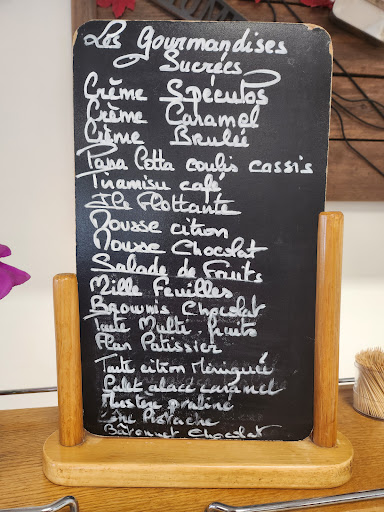 Les Gourmandises
Sucrées
Crème Spéculos
Crème Caramel
Crème Brulée
Pana Cotta coulis cassis
Tiramisu café
Ile Flottante
Mousse citron
Mousse Chocolat
Salade de Fruits
Mille Feuilles
Brownis Chocolat
Tarte Multi-fruits
Flan Patissier
Tarte citron Méringuée
Palet glacé caramel
praliné
Pistache
Bâtonnet Chocolat